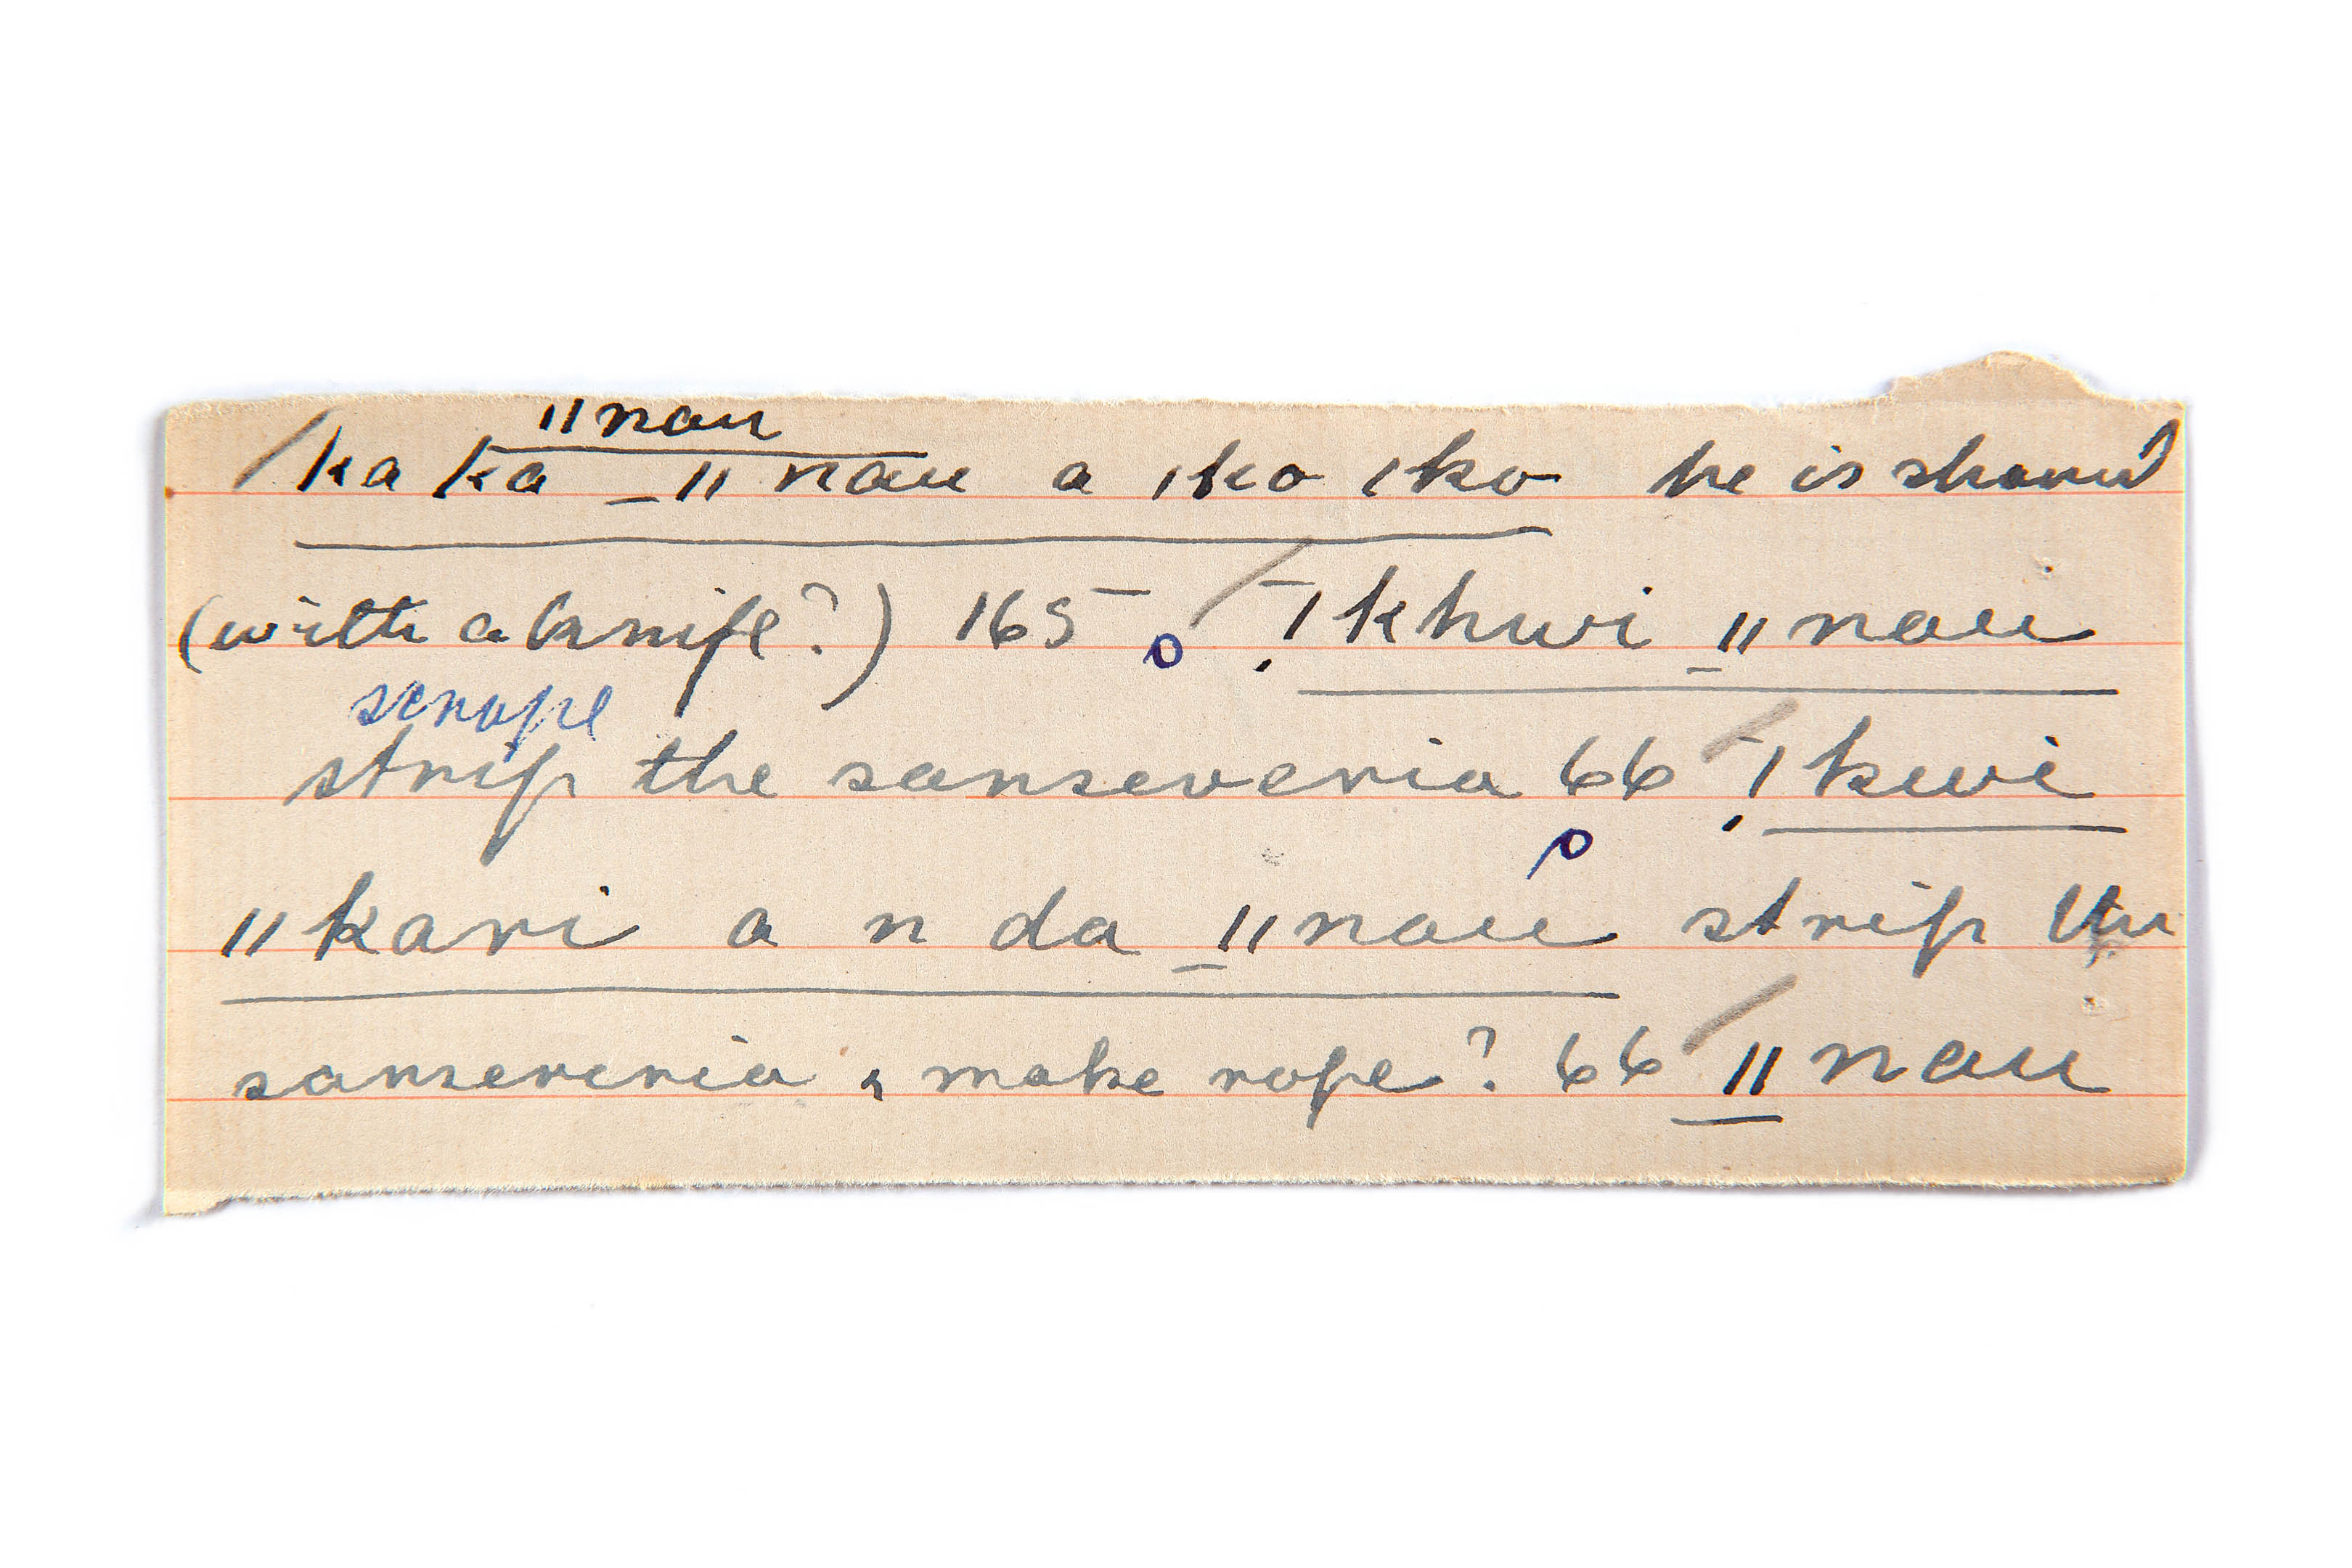 ǁnau
ka ka _ǁnau a ǀko ǀko he is shaved
(with a knife?) 165 ǃkhwi _ǁnau
scrape
strip the sanseveria 66 ǃkwi
ǁkari a n da _ǁnau strip the
sanseveria & make rope? 66 _ǁnau